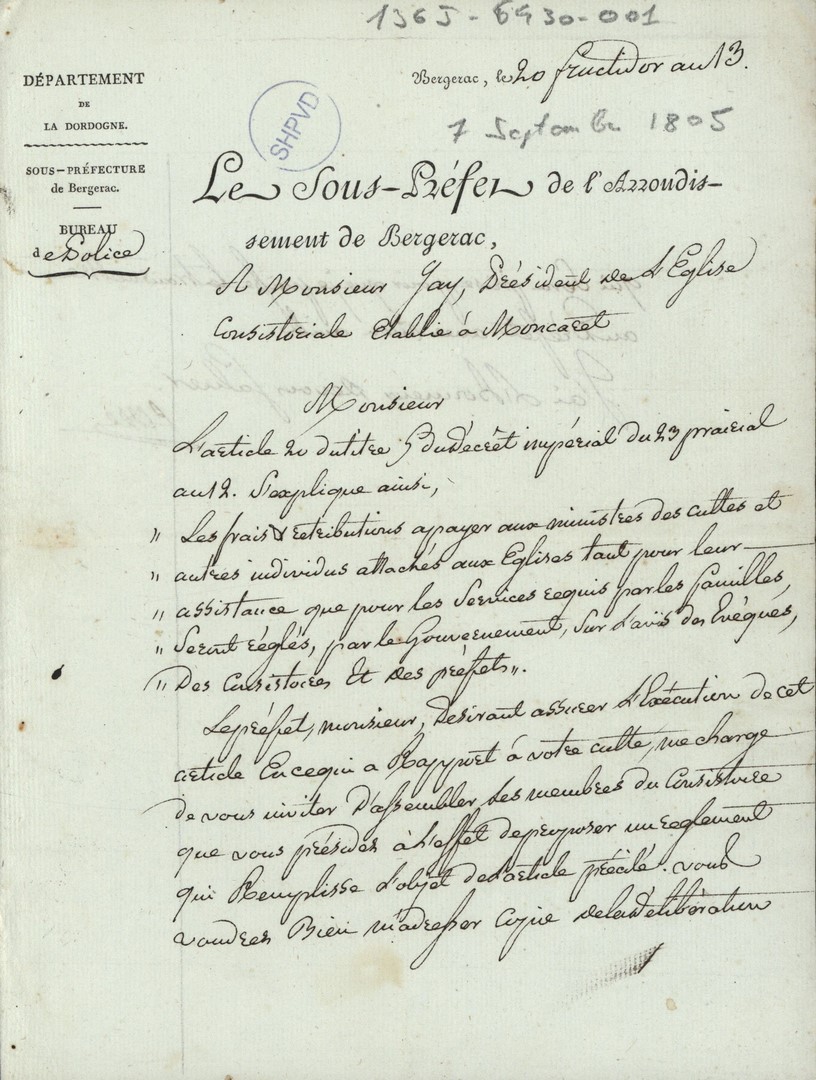 136J-6G30-001
DÉPARTEMENT
DE
LA DORDOGNE.
SOUS-PRÉFECTURE
de Bergerac.
BUREAU
de Police
SHPVD
Bergerac, le 20 fructidor an 13.
7 Septembre 1805
Le Sous-Préfet de l'Arrondis-
sement de Bergerac,
A Monsieur Gay, Président de L'Eglise
Consistoriale Etablie à Moncaret
Monsieur
L'article 20 du titre 5 du décrèt impérial du 23 prairial
an 12. S'explique ainsi,
" Les frais & rétributions a payer aux ministres des cultes et
" autres individus attachés aux Eglises tant pour leur
" assistance que pour les Services requis par les familles,
" Seront réglés, par le Gouvernement, Sur L'avis des Evêques,
" Des Consistoires Et des préfets".
Le préfet, monsieur, Désirant assurer L'Exécution de cet
article En ce qui a Rapport à votre culte, me charge
de vous inviter D'assembler Les membres du Consistoire
que vous présidez à L'effet de proposer un reglement
qui Remplisse L'objet de L'article précité. vous
voudrez Bien m'adresser Copie de la délibération